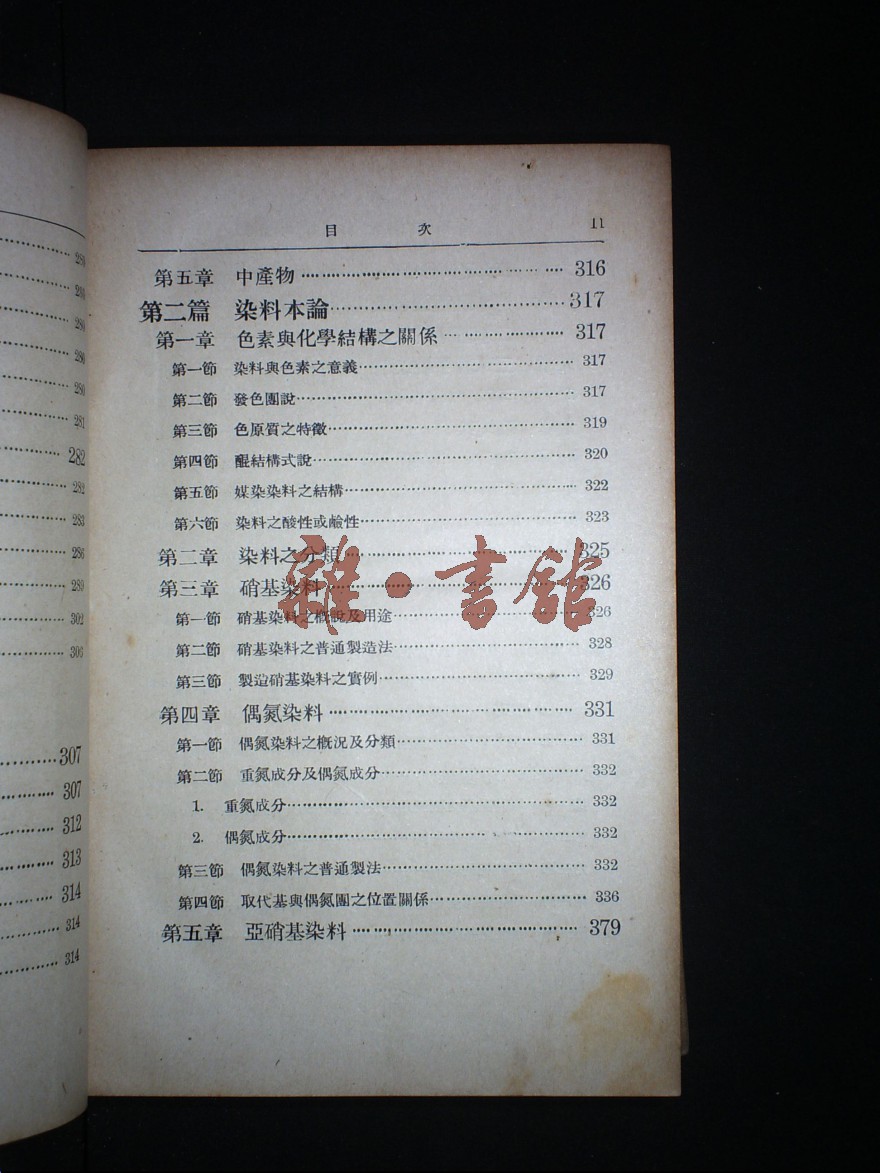 280
280
280
280
280
281
282
282
283
286
289
302
306
307
307
312
313
314
314
314
目 次 11
第五章 中產物 316
第二篇 染料本論 317
第一章 色素與化學結構之關係 317
第一節 染料與色素之意義 317
第二節 發色團說 317
第三節 色原質之特徵 319
第四節 醌結構式說 320
第五節 媒染染料之結構 322
第六節 染料之酸性或鹼性 323
第二章 染料之分類 325
第三章 硝基染料 326
第一節 硝基染料之概說及用途 326
第二節 硝基染料之普通製造法 328
第三節 製造硝基染料之實例 329
第四章 偶氮染料 331
第一節 偶氮染料之概況及分類 331
第二節 重氮成分及偶氮成分 332
1. 重氮成分 332
2. 偶氮成分 332
第三節 偶氮染料之普通製法 332
第四節 取代基與偶氮團之位置關係 336
第五章 亞硝基染料 379
雜·書館